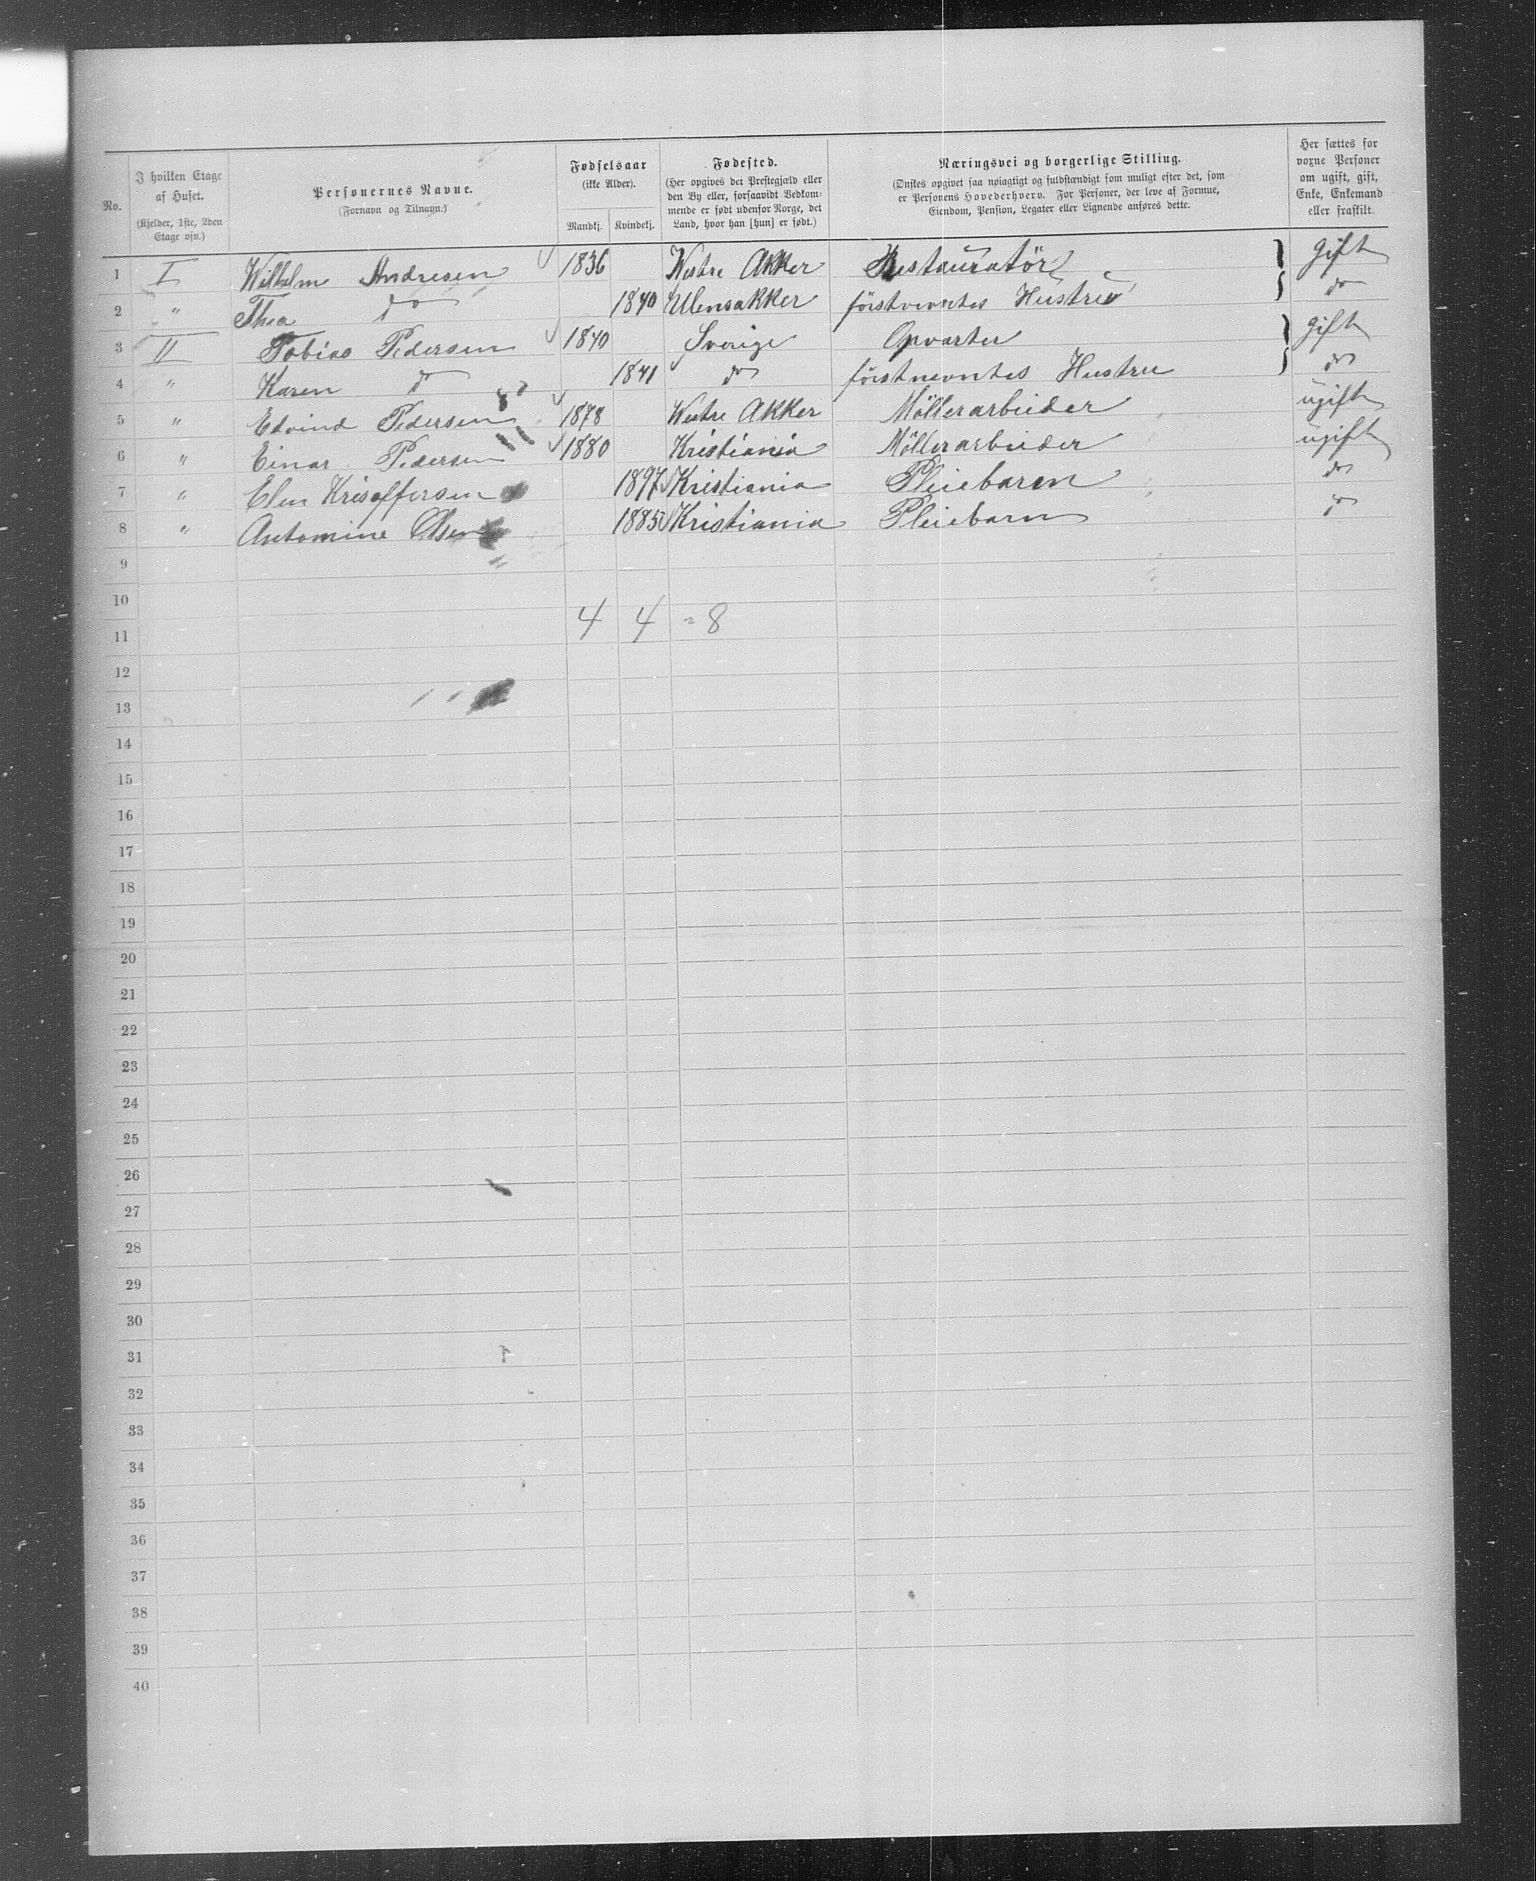 No. | I hvilken Etage af Huset. (Kjelder, 1ste, 2den Etage osv.) | Personernes Navne. (Fornavn og Tilnavn.) | Fødselsaar (ikke Alder). Mandkj. | Kvindekj. | Fødested. (Her opgives det Prestegjæld eller den By eller, forsaavidt Vedkommende er født udenfor Norge, det Land, hvor han [hun] er født.) | Næringsvei og borgerlige Stilling. (Ønskes opgivet saa nøiagtigt og fuldstændigt som muligt efter det, som er Personens Hovederhverv. For Personer, der leve af Formue, Eiendom, Pension, Legater eller Lignende anføres dette. | Her sættes for voxne Personer om ugift, gift, Enke, Enkemand eller fraskilt.
1 I Wilhelm Andresen 1836 Westre Akker Restauratör } gift
2 " Thea do 1840 Ulensakker förstnevntes Hustru } do
3 II Tobias Pedersen 1840 Sverige Opvarter } gift
4 " Karen do 1841 do förstnevntes Hustru } do
5 " Edvind Pedersen 1878 Westre Akker Möllerarbeider ugift
6 " Einar Pedersen 1880 Kristiania Möllerarbeider ugift
7 " Elen Krisoffersen 1897 Kristiania Pleiebaren do
8 " Antomine Olsen 1885 Kristiania Pleiebarn do
9
10
4 4 = 8
11
12
13
14
15
16
17
18
19
20
21
22
23
24
25
26
27
28
29
30
31
32
33
34
35
36
37
38
39
40